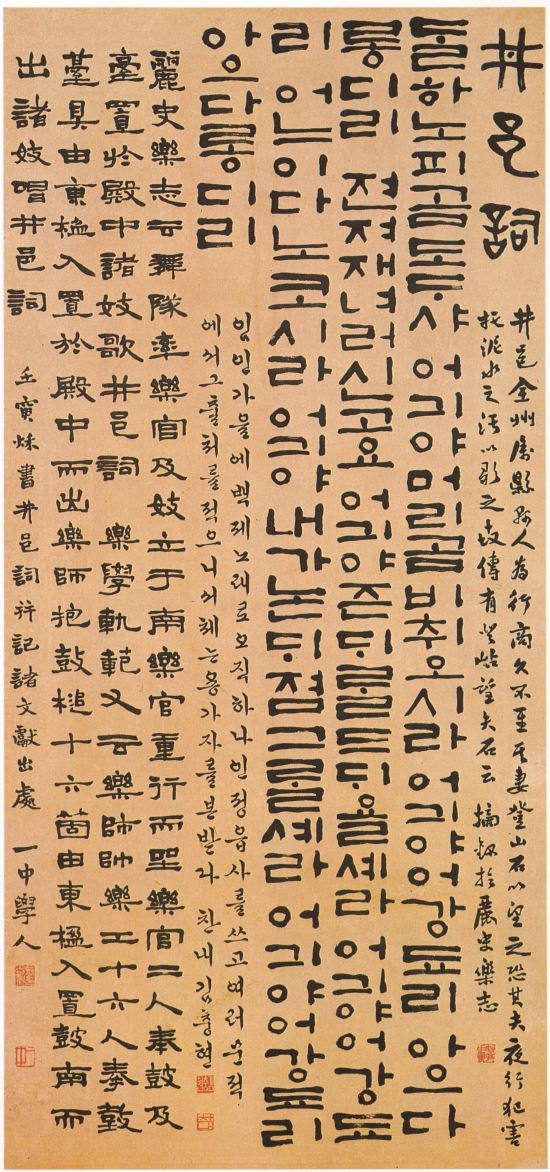 井邑詞
井邑全州屬縣縣人為行商久不至其妻登山石以望之恐其夫夜行犯害
托泥水之汚以歌之故傳有登岾望夫石云 摘錄於麗史樂志
ᄃᆞᆯ하노피곰도ᄃᆞ샤 어긔야머리곰비취오시라 어긔야어강됴리 아으다
롱디리 젼져재녀러신고요 어긔야즌ᄃᆡᄅᆞᆯ드ᄃᆡ욜셰라 어긔야어강됴
리 어느이다노코시라 어긔야내가논ᄃᆡ졈그ᄅᆞᆯ셰라 어긔야어강됴리
아으다롱디리
임인가을에백제노래로오직하나인정읍사를쓰고여러문적
에서그출처를적으니서체는용가자를본받다 찬내김충현
麗史樂志云舞隊率樂官及妓立于南樂官重行而坐樂官二人奉鼓及
臺置於殿中諸妓歌井邑詞 樂學軌範又云樂師帥樂工十六人奉鼓
臺具由東楹入置於殿中而出樂師抱鼓槌十六箇由東楹入置鼓南而
出諸妓唱井邑詞 壬寅秋書井邑詞幷記諸文獻出處 一中學人